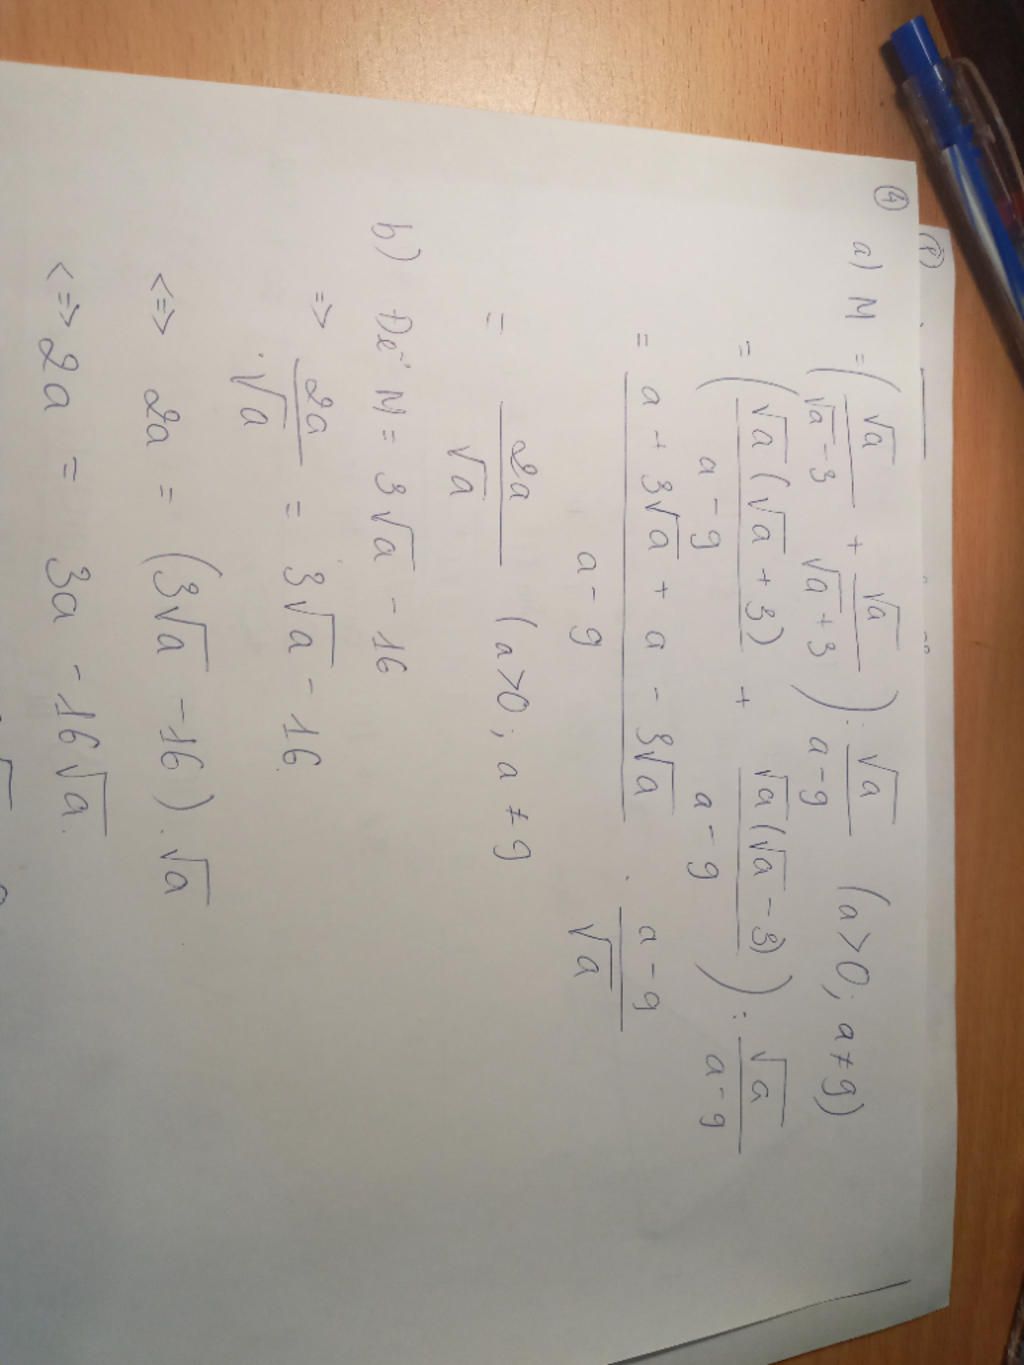 ④
a) M = (√a/(√a - 3) + √a/(√a + 3)) : √a/(a - 9) (a > 0; a ≠ 9)
= (√a(√a + 3)/(a - 9) + √a(√a - 3)/(a - 9)) : √a/(a - 9)
= (a + 3√a + a - 3√a)/(a - 9) . (a - 9)/√a
= 2a/√a (a > 0; a ≠ 9)
b) Để M = 3√a - 16
=> 2a/√a = 3√a - 16
<=> 2a = (3√a - 16) . √a
<=> 2a = 3a - 16√a